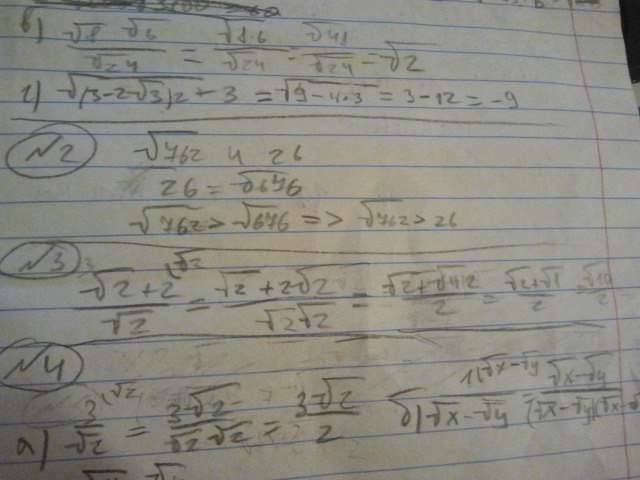 в) √8 · √6 / √24 = √8·6 / √24 = √48 / √24 = √2
г) √(3-2√3)2 + 3 = √9-4·3 = 3-12 = -9
№2 √762 и 26
26 = √676
√762 > √676 => √762 > 26
№3 √2+2 / √2 = √2+2√2 / √2√2 = √2+√4·2 / 2 = √2+√8 / 2 = √10 / 2
№4
а) 3 / √2 = 3√2 / √2·√2 = 3√2 / 2 б) 1 / √x-√y = √x-√y / (√x-√y)(√x-